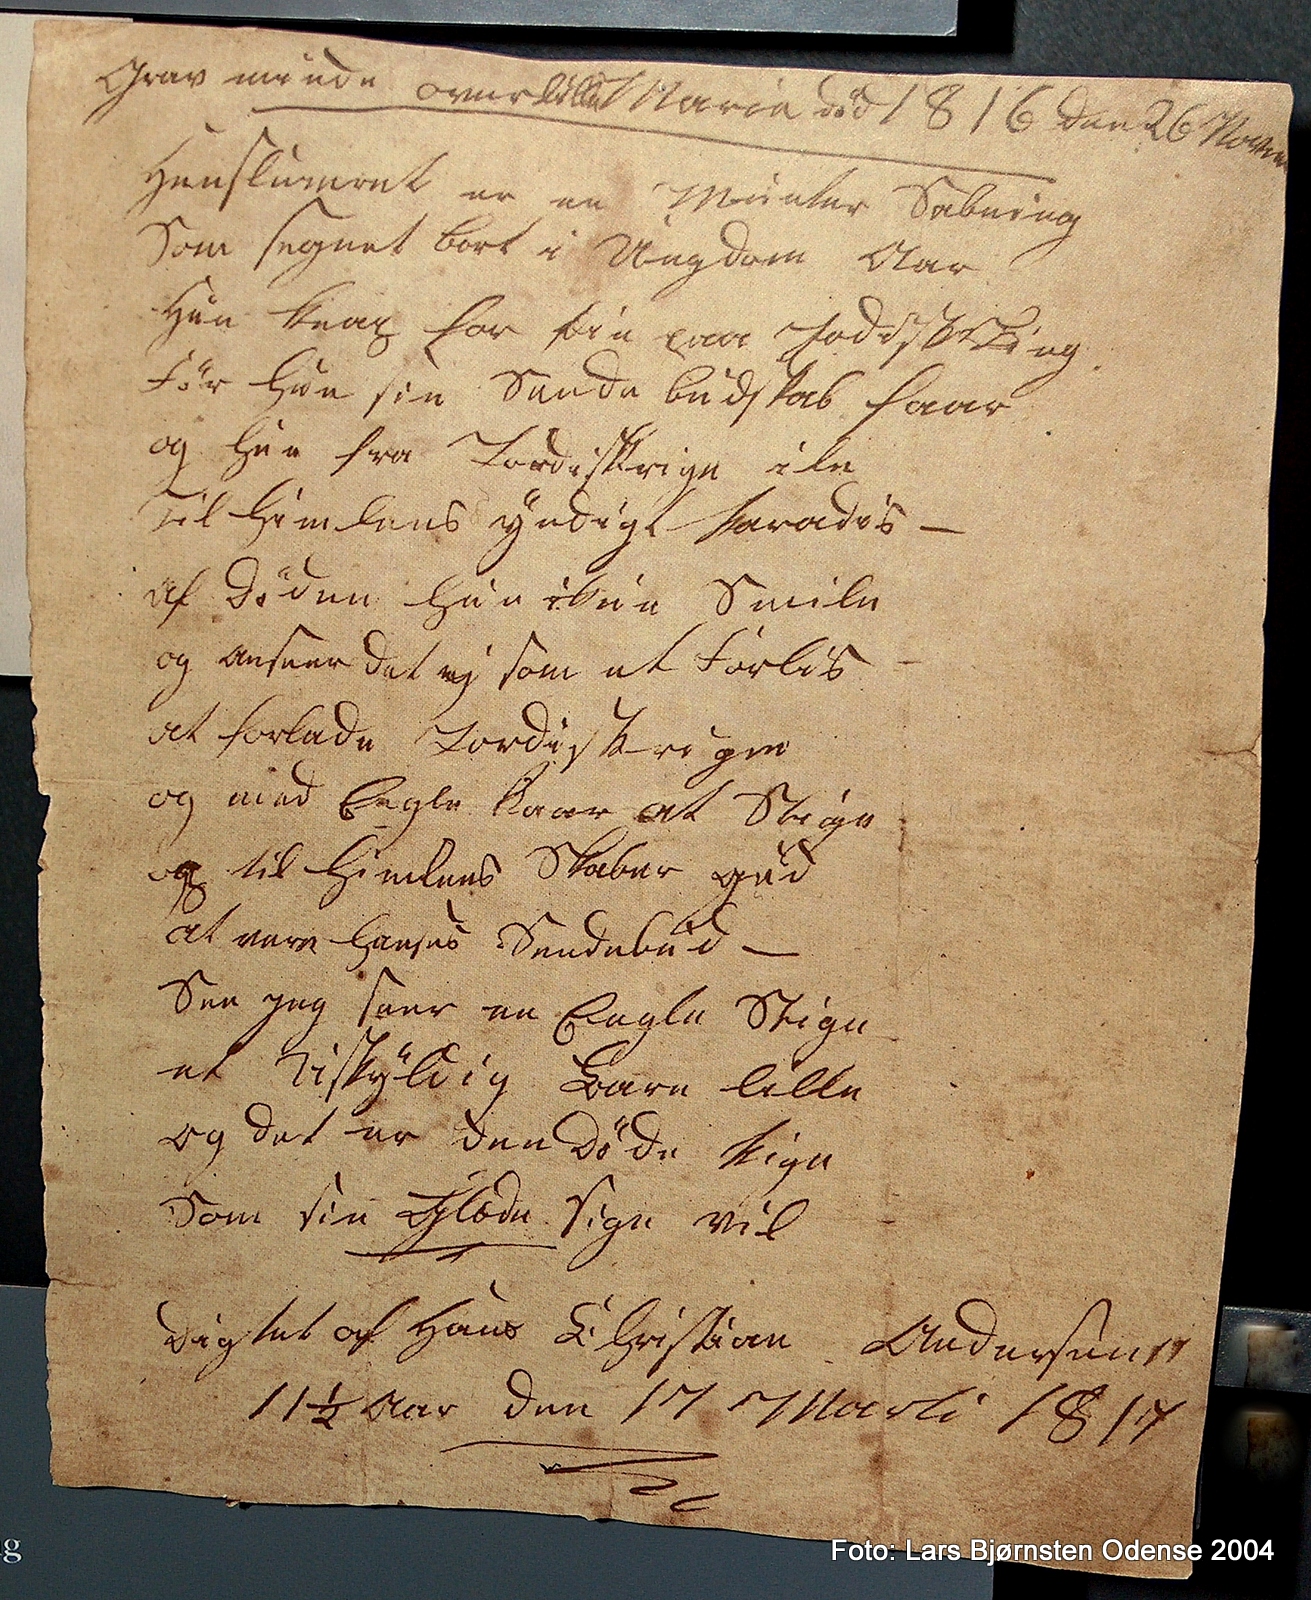 Grav minde over lille Maria död 1816 den 26 Novem
Henslumret er en Munter Sabning
Som segnet bort i Ungdom Aar
Hun knap for sin paa
För hun sin Sende budskab faar
og hun fra Jordiskrige ile
til Himlens yndigt Paradis —
af Döden hun ikun Smile
og anseer det ej som et Forlis
at forlade Jordiskrigen
og med Engle kaar at Stige
op til Himlens Skaber gud
at vere Hanses Sendebud —
See jeg seer en Engle Stige
et Uskyldig Barn lille
og det er den Döde Pige
Som sin Glæde Sige vil
Digtet af Hans Christian Andersen
11½ Aar den 17 Marti 1817
g
Foto: Lars Bjørnsten Odense 2004